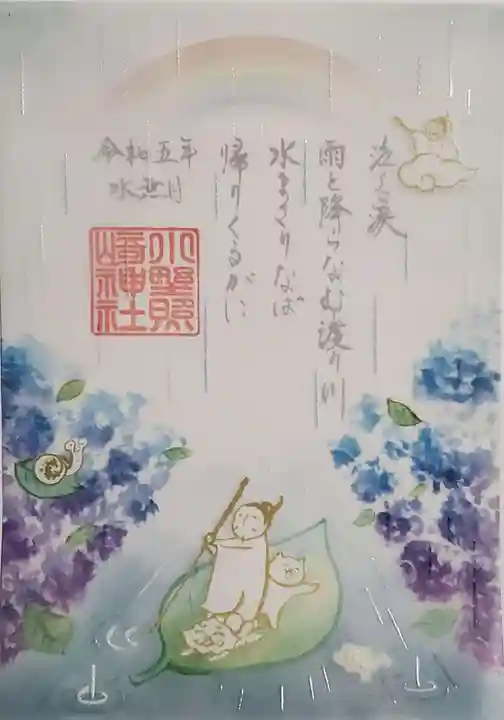 泣く涙
雨と降らなむ渡り川
水まさりなば
帰りくるがに
令和五年
水無月
小野照
崎神社